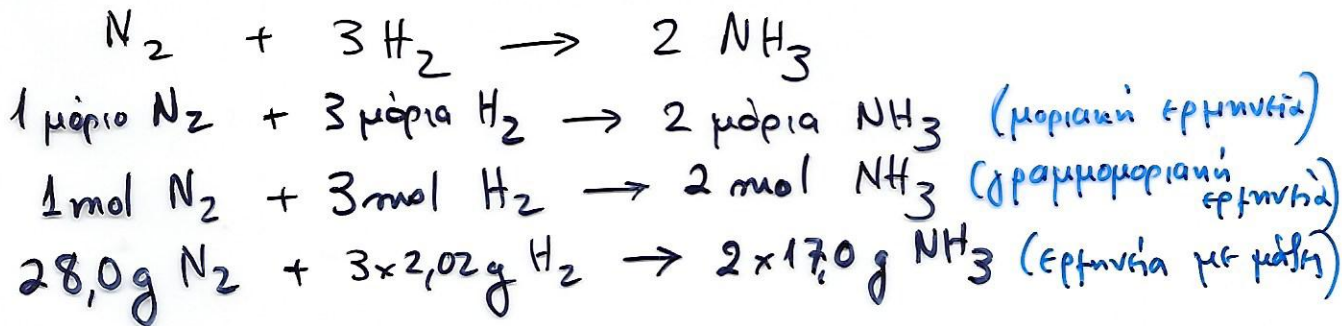 N₂ + 3 H₂ → 2 NH₃
1 μόριο N₂ + 3 μόρια H₂ → 2 μόρια NH₃ (μοριακή ερμηνεία)
1 mol N₂ + 3 mol H₂ → 2 mol NH₃ (γραμμομοριακή ερμηνεία)
28,0g N₂ + 3×2,02g H₂ → 2×17,0 g NH₃ (Ερμηνεία με μάζες)